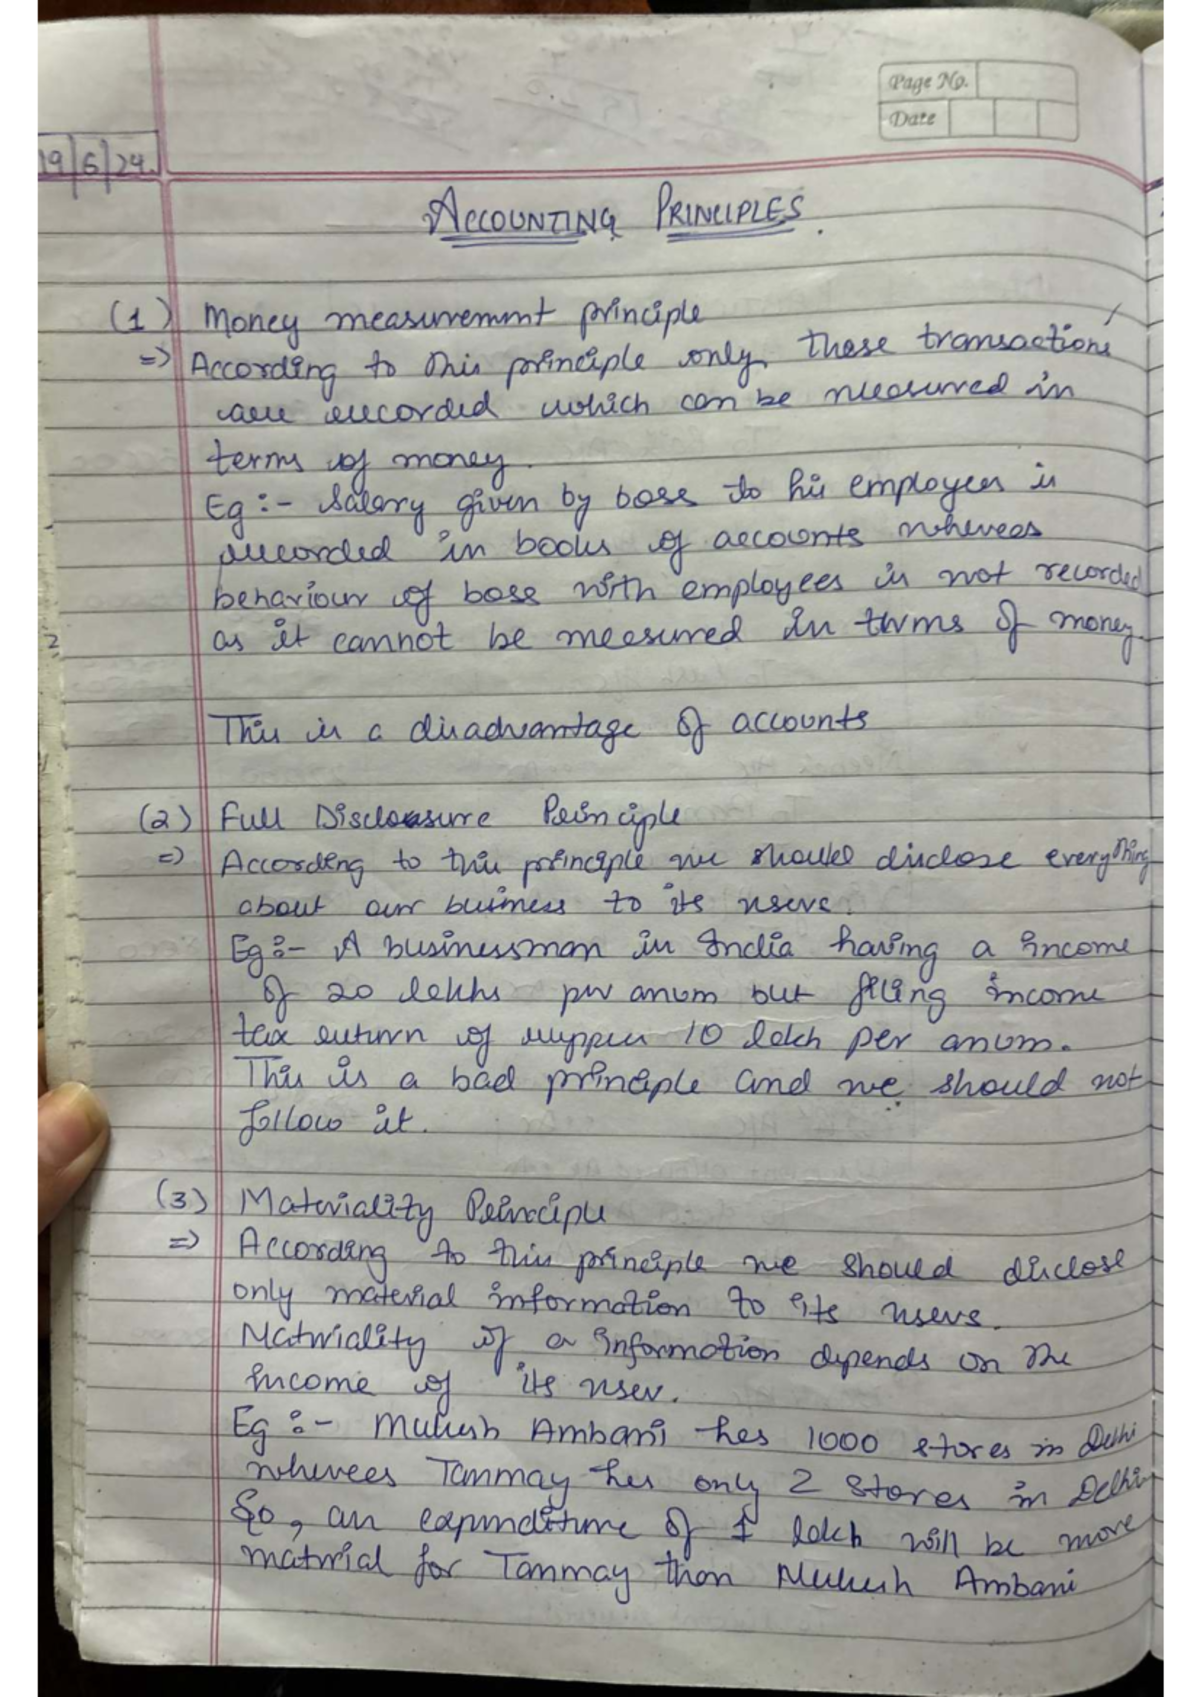 Page No.
Date
19/6/24.
ACCOUNTING PRINCIPLES.
(1) Money measuremmt principle
=> According to this principle only those transactions
are recorded which can be measured in
terms of money.
Eg :- Salary given by boss to his employees is
recorded in books of accounts whereas
behaviour of boss with employees is not recorded
as it cannot be measured in terms of money.
This is a disadvantage of accounts
(2) Full Disclosure Principle
=> According to this principle we should disclose everything
about our business to its users.
Eg :- A businessman in India having a income
of 20 lakhs per anum but filing income
tax return of ruppes 10 lakh per anum.
This is a bad principle and we should not
follow it.
(3) Materiality Principle
=> According to this principle we should disclose
only material information to its users.
Materiality of a information depends on the
income of its user.
Eg :- Mukesh Ambani has 1000 stores in Delhi
whereas Tanmay has only 2 stores in Delhi
So, an expenditure of 1 lakh will be more
material for Tanmay than Mukesh Ambani